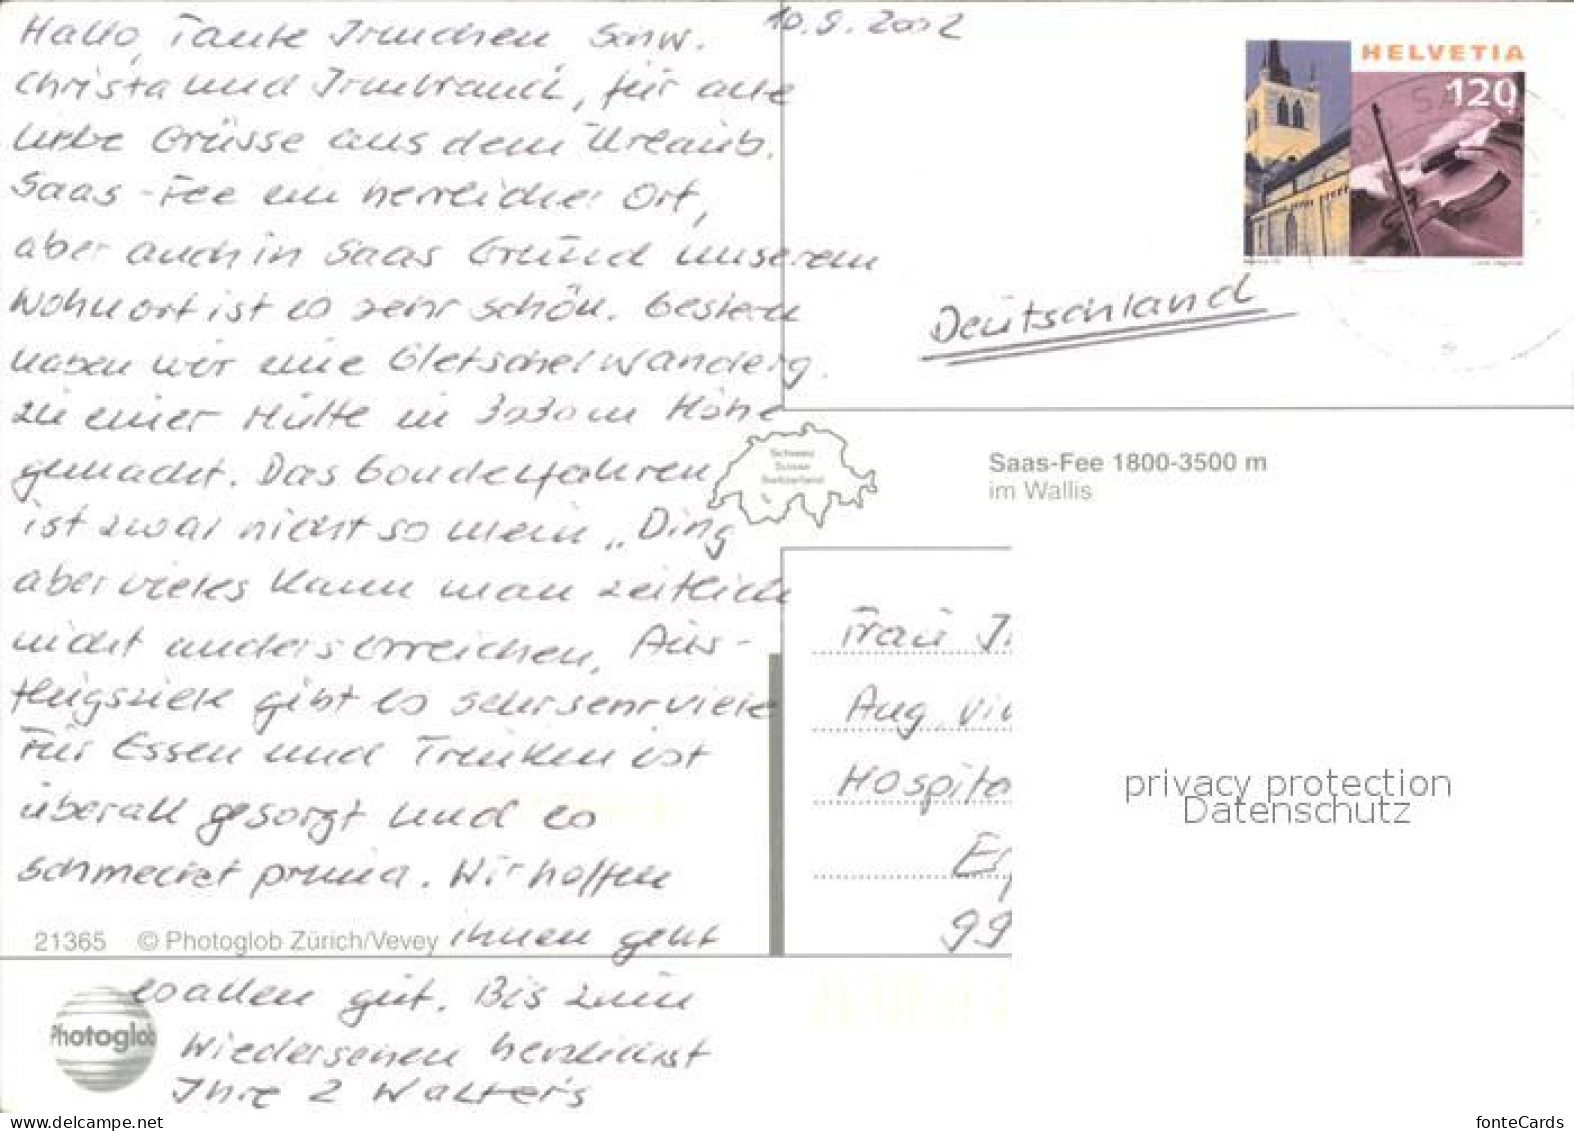 10.9.2002
Hallo, Tante Irmchen, Schw.
Christa und Irmtraud, für alle
liebe Grüsse aus dem Urlaub.
Saas-Fee ein herrlicher Ort,
aber auch in Saas Grund unserem
Wohnort ist es sehr schön. Gestern
haben wir eine Gletscherwanderg.
zu einer Hütte in 3030 m Höhe
gemacht. Das Gondelfahren
ist zwar nicht so mein „Ding
aber vieles kann man zeitlich
nicht anders erreichen. Aus-
flugsziele gibt es sehr sehr viele
Für Essen und Trinken ist
überall gesorgt und es
schmecket prima. Wir hoffen
ihnen geht
es allen gut. Bis zum
Wiedersehen herzlichst
Ihre 2 Walter's
HELVETIA
120
Deutschland
Schweiz
Suisse
Switzerland
Saas-Fee 1800-3500 m
im Wallis
Frau
Aug.
Hospita
99
privacy protection
Datenschutz
21365 © Photoglob Zürich/Vevey
Photoglob
www.delcampe.net
fonteCards